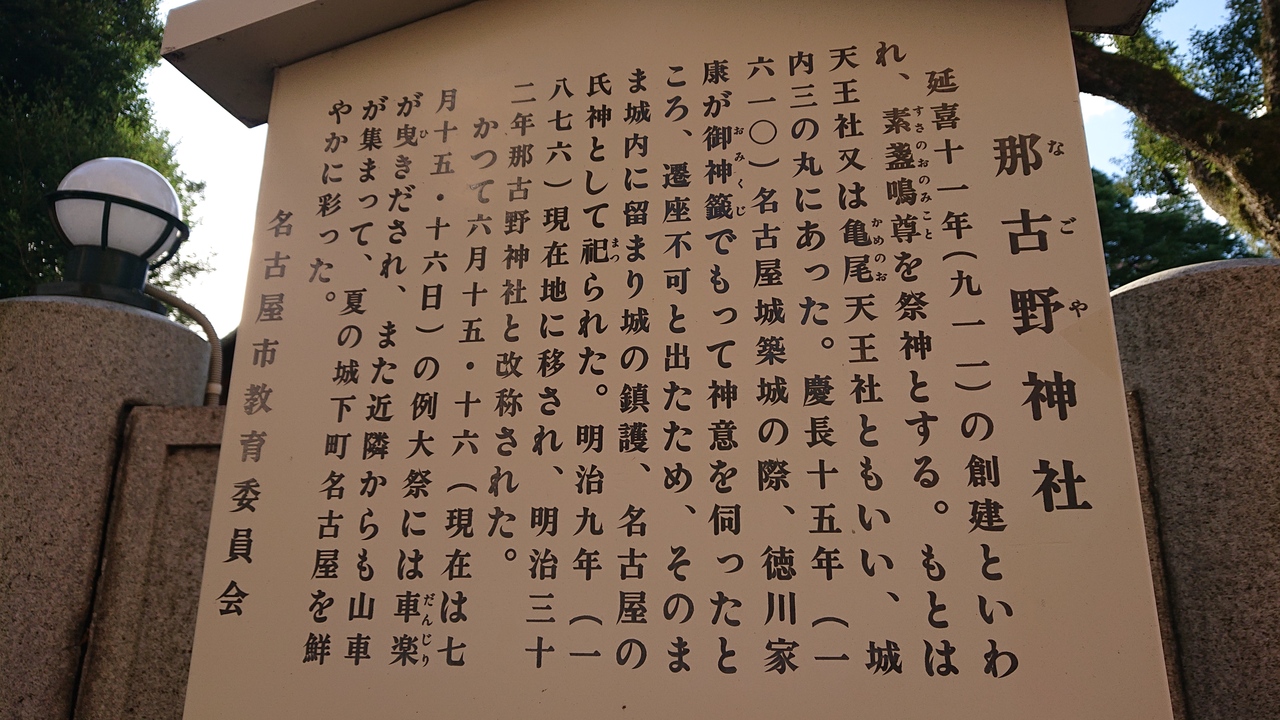 那古野神社
なごや
延喜十一年(九一一)の創建といわ
れ、素盞鳴尊を祭神とする。もとは
すさのおのみこと
天王社又は亀尾天王社ともいい、城
かめのお
内三の丸にあった。慶長十五年(一
六一〇)名古屋城築城の際、徳川家
康が御神籤でもって神意を伺ったと
おみくじ
ころ、遷座不可と出たため、そのま
ま城内に留まり城の鎮護、名古屋の
氏神として祀られた。明治九年(一
まつ
八七六)現在地に移され、明治三十
二年那古野神社と改称された。
かつて六月十五・十六(現在は七
月十五・十六日)の例大祭には車楽
だんじり
が曳きだされ、また近隣からも山車
ひ
が集まって、夏の城下町名古屋を鮮
やかに彩った。
名古屋市教育委員会